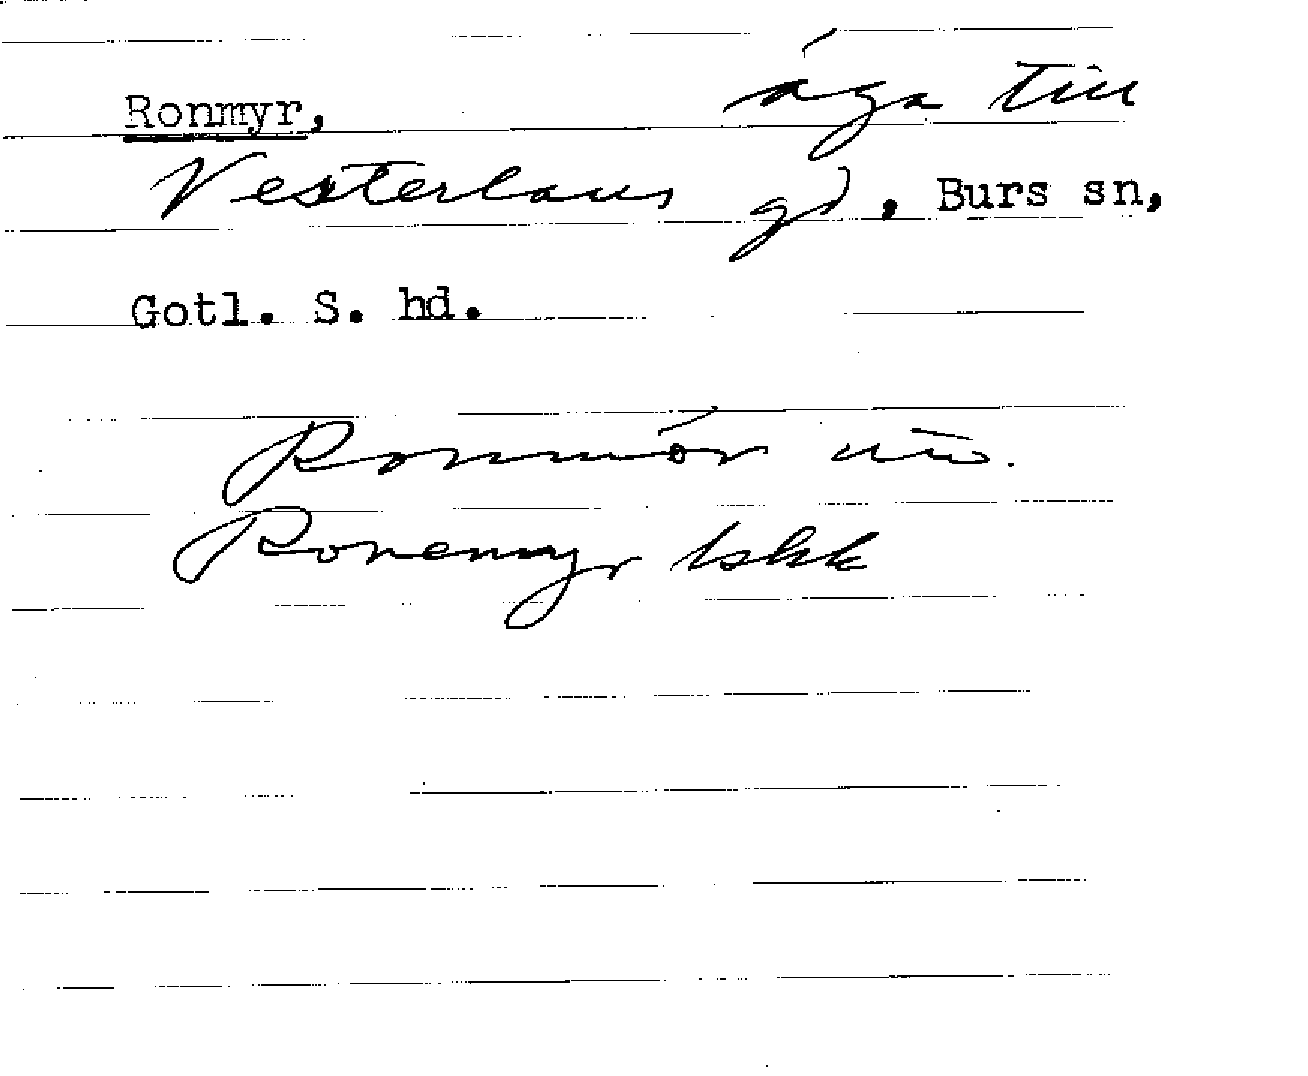 Ronmyr, äga till
Vesterlaus gd, Burs sn,
Gotl. S. hd.
Ronmör
Ronemyr lskk